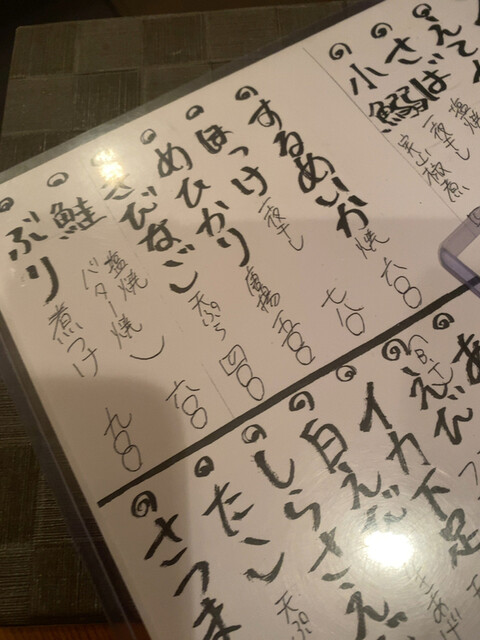 さば 一夜干し
小鰯 実山椒煮
するめいか 焼 六〇〇
ほっけ 一夜干し 七八〇
めひかり 唐揚 五〇〇
きびなご 天ぷら 四〇〇
鮭 塩焼 バター焼 六〇〇
ぶり 煮つけ 九〇〇
えび
イカ下足
白えび
しらさえ
たこ 天ぷ
さつま